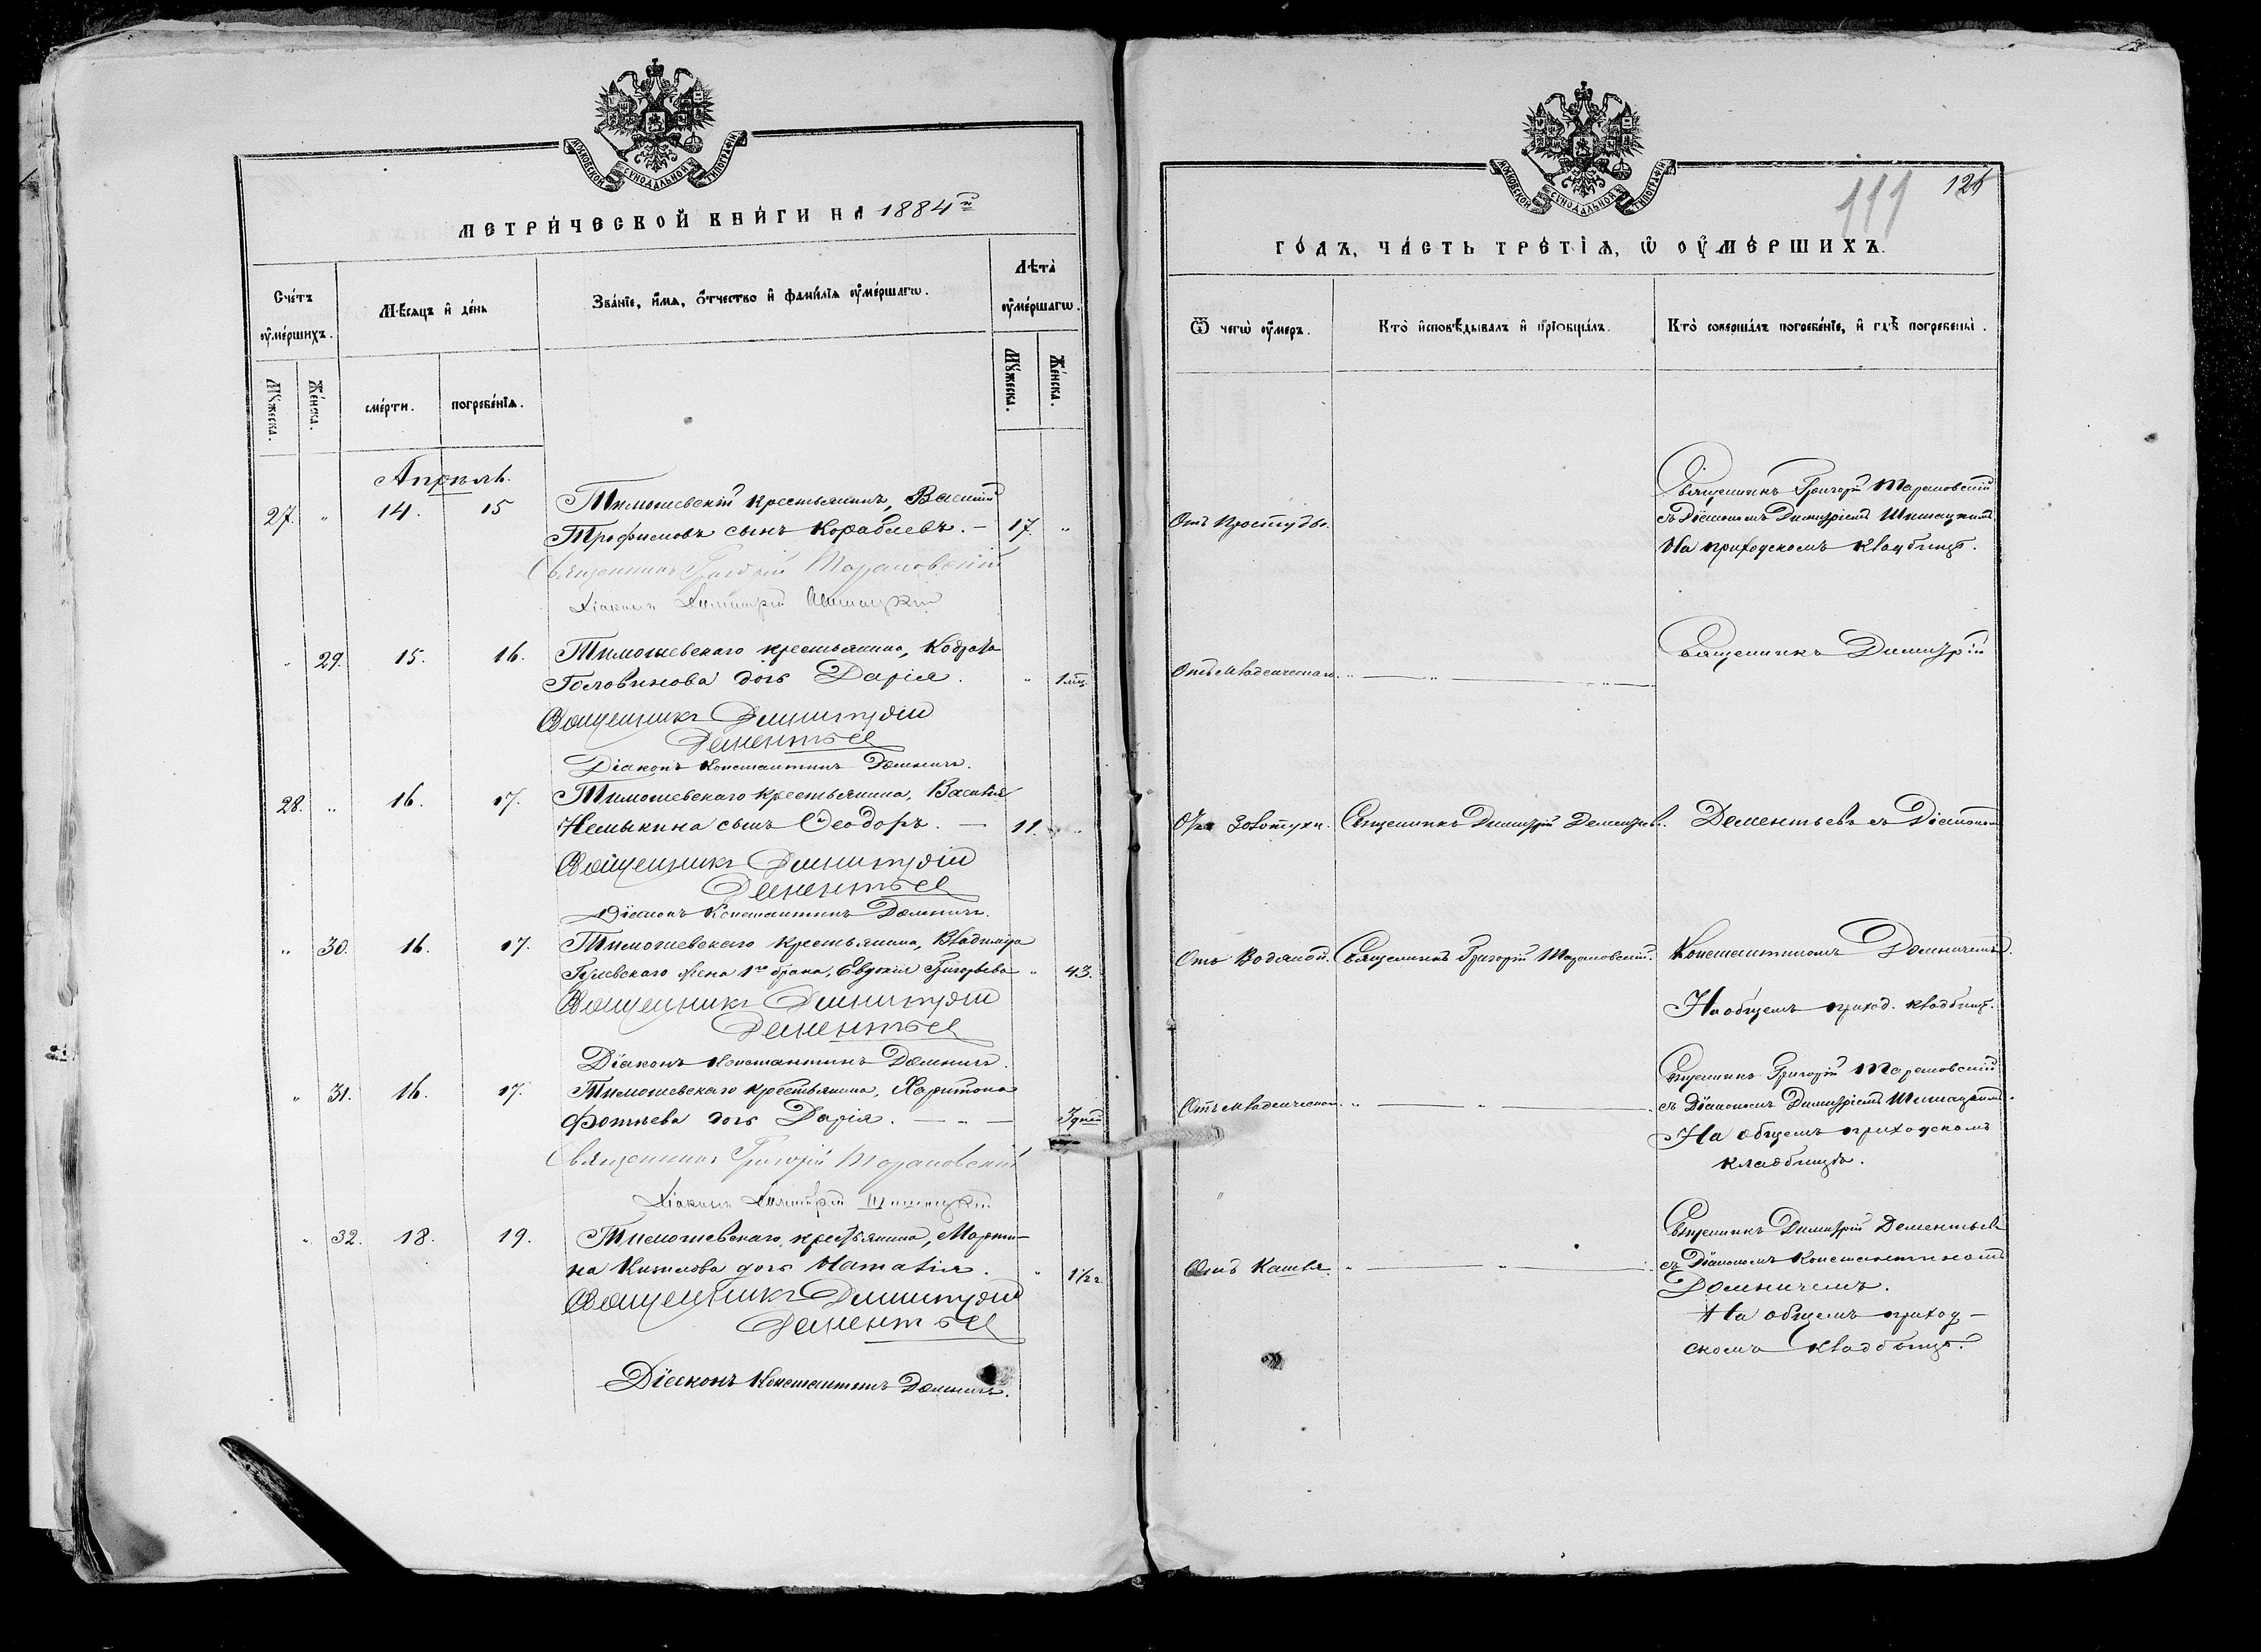 МОСКОВСКОЙ СѴНОДАЛЬНОЙ ТИПОГРАФІИ
МЕТРИ́ЧЕСКОЙ КНИ́ГИ НА 1884й
Сче́тъ ᲂу҆ме́ршихъ.
Мꙋ́жеска.
Же́нска.
Мѣ́сяцъ и҆ де́нь
сме́рти.
погребе́нїѧ.
Зва́нїе, и҆́мѧ, ѻ҆́тчество и҆ фами́лїѧ ᲂу҆ме́ршагѡ.
Лѣ́та ᲂу҆ме́ршагѡ.
Мꙋ́жеска.
Же́нска.
Апрѣль.
27. " 14. 15 Тимошевскій крестьянинъ, Василій
Трофимовъ сынъ Кораблевъ. — 17. "
Священникъ Григорій Тарановскій
Діаконъ Димитрій Шишацкій
" 29. 15. 16. Тимошевскаго крестьянина, Кодрата
Головинова дочь Дарія. " 1 мц.
Священникъ Димитрій
Дементьев
Діаконъ Константинъ Домничъ.
28. " 16. 17. Тимошевскаго крестьянина, Василія
Немыкина сынъ Ѳеодоръ. — 11. "
Священникъ Димитрій
Дементьев
Діаконъ Константинъ Домничъ.
" 30. 16. 17. Тимошевскаго крестьянина, Владиміра
жена 1го брака, Евдокія Григорьева " 43.
Священникъ Димитрій
Дементьев
Діаконъ Константинъ Домничъ.
" 31. 16. 17. Тимошевскаго крестьянина, Харитона
Фотіева дочь Дарія. — " —
Священникъ Григорій Тарановскій
Діаконъ Димитрій Шишацкій
" 32. 18. 19. Тимошевскаго крестьянина, Марти-
на дочь Наталія. " 1½ г.
Священникъ Димитрій
Дементьев
Діаконъ Константинъ Домничъ.
МОСКОВСКОЙ СѴНОДАЛЬНОЙ ТИПОГРАФІИ
111
ГО́ДЪ, ЧА́СТЬ ТРЕ́ТЇѦ, Ѡ҆ ОУ҆МЕ́РШИХЪ.
Ѿ чегѡ̀ ᲂу҆́меръ.
Кто̀ и҆сповѣ́дывалъ и҆ прїѻбща́лъ.
Кто̀ соверша́лъ погребе́нїе, и҆ гдѣ̀ погребены̀.
Отъ простуды.
Священникъ Григорій Тарановскій
съ Діакономъ Димитріемъ Шишацкимъ.
На приходскомъ кладбищѣ.
Отъ младенческаго. " — " —
Священникъ Димитрій
Отъ золотухи. Священникъ Димитрій Дементьев. Дементьевъ съ Діакономъ
Отъ водяной. Священникъ Григорій Тарановскій. Константиномъ Домничемъ.
На общемъ приход. кладбищѣ.
Священникъ Григорій Тарановскій
Отъ младенческаго. " — " — съ Діакономъ Димитріемъ Шишацкимъ.
На общемъ приходскомъ
кладбищѣ.
Священникъ Димитрій Дементьевъ
Отъ кашля. " — " — съ Діакономъ Константиномъ
Домничемъ.
На общемъ приход-
скомъ кладбищѣ.